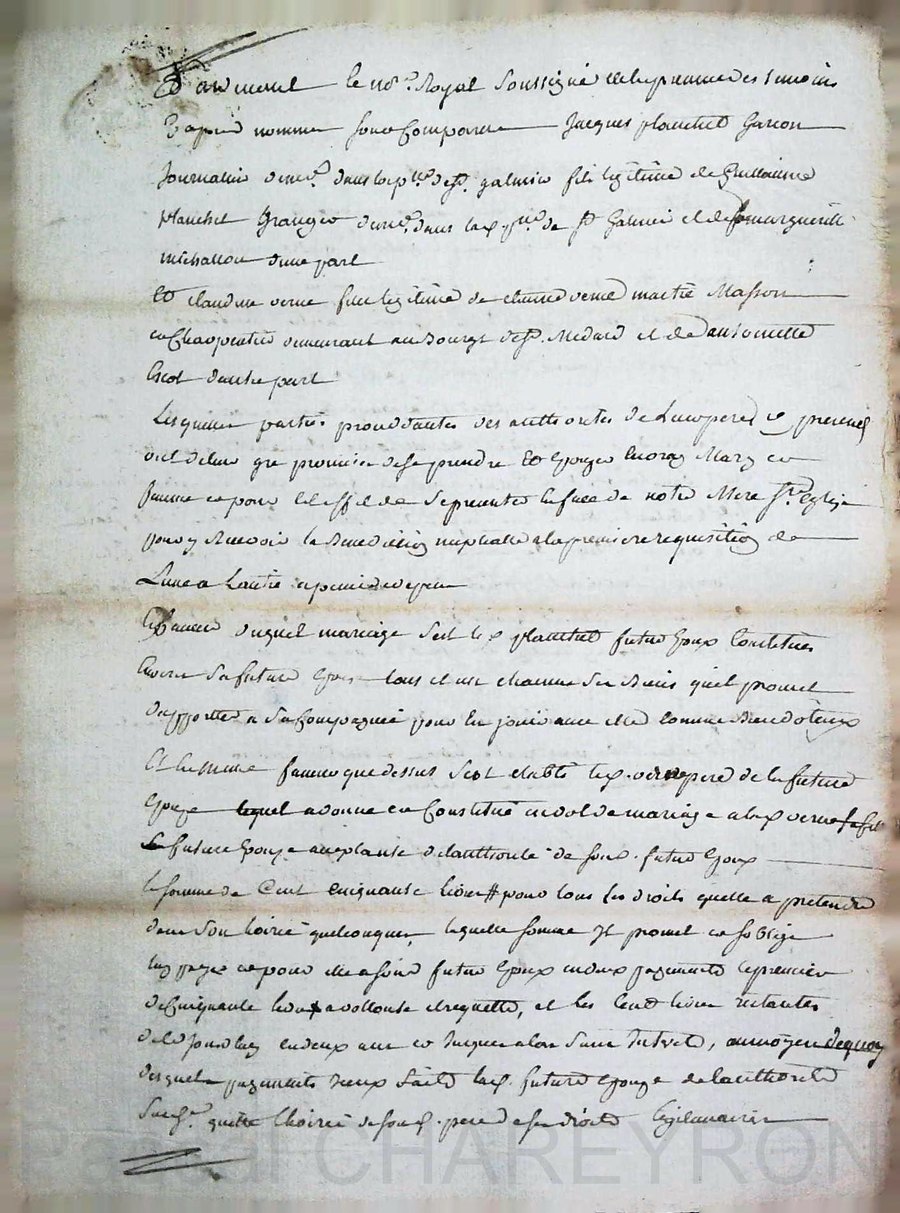 Pardevant le no.re Royal Soussigné et En presence des temoins
Cy apres nommes furent Comparans Jacques planchet Garcon
Journalier dem.t dans la p.sse de S.t galmier fils legitime de Guillaume
planchet Granger dem.t dans lad. p.sse de S.t Galmier et de marguerite
michallon d'une part
Et claudine verne fille legitime de verne maitre Masson
et Charpentier demeurant au Bourg de S.t Medard et de antoinette
d'autre part
Lesquelles parties procedantes des authorites de leurs peres cy presents
ont de leur gre promis de se prendre et Epouzer En vray Mary et
femme et pour cet effet de se presenter En face de notre Mere S.te Eglise
pour y Recevoir la Benediction nuptialle a la premiere requisition de
L'une a L'autre a peine de depens
En faveur duquel mariage s'est led. planchet futur Epoux Constitué
Envers sa future Epouse tous et un chacun ses Biens qu'il promet
d'apporter a sa Compagnie pour En jouir comme Biens dotaux
Et En meme faveur que dessus s'est etabli led. verne pere de la future
Epouze lequel a donné et Constitué en dot de mariage a lad. verne sa fille
future Epouze acceptante de l'authorité de sond. futur Epoux
la somme de Cent cinquante livres pour tous les droits qu'elle a pretendre
dans son hoirie quelconque, laquelle somme Il promet et s'oblige
luy payer et pour elle a son futur Epoux en deux payements le premier
de Cinquante livres a volonté et requette, et les Cent livres restantes
d'aujourd'huy en deux ans et Jusques alors sans Interet, au moyen de quoy
desquels payements Iceux faits lad. future Epouze de l'authorité
Susd.te quitte l'hoirie de sond. pere de ses droits Legitimaires
Pascal CHAREYRON